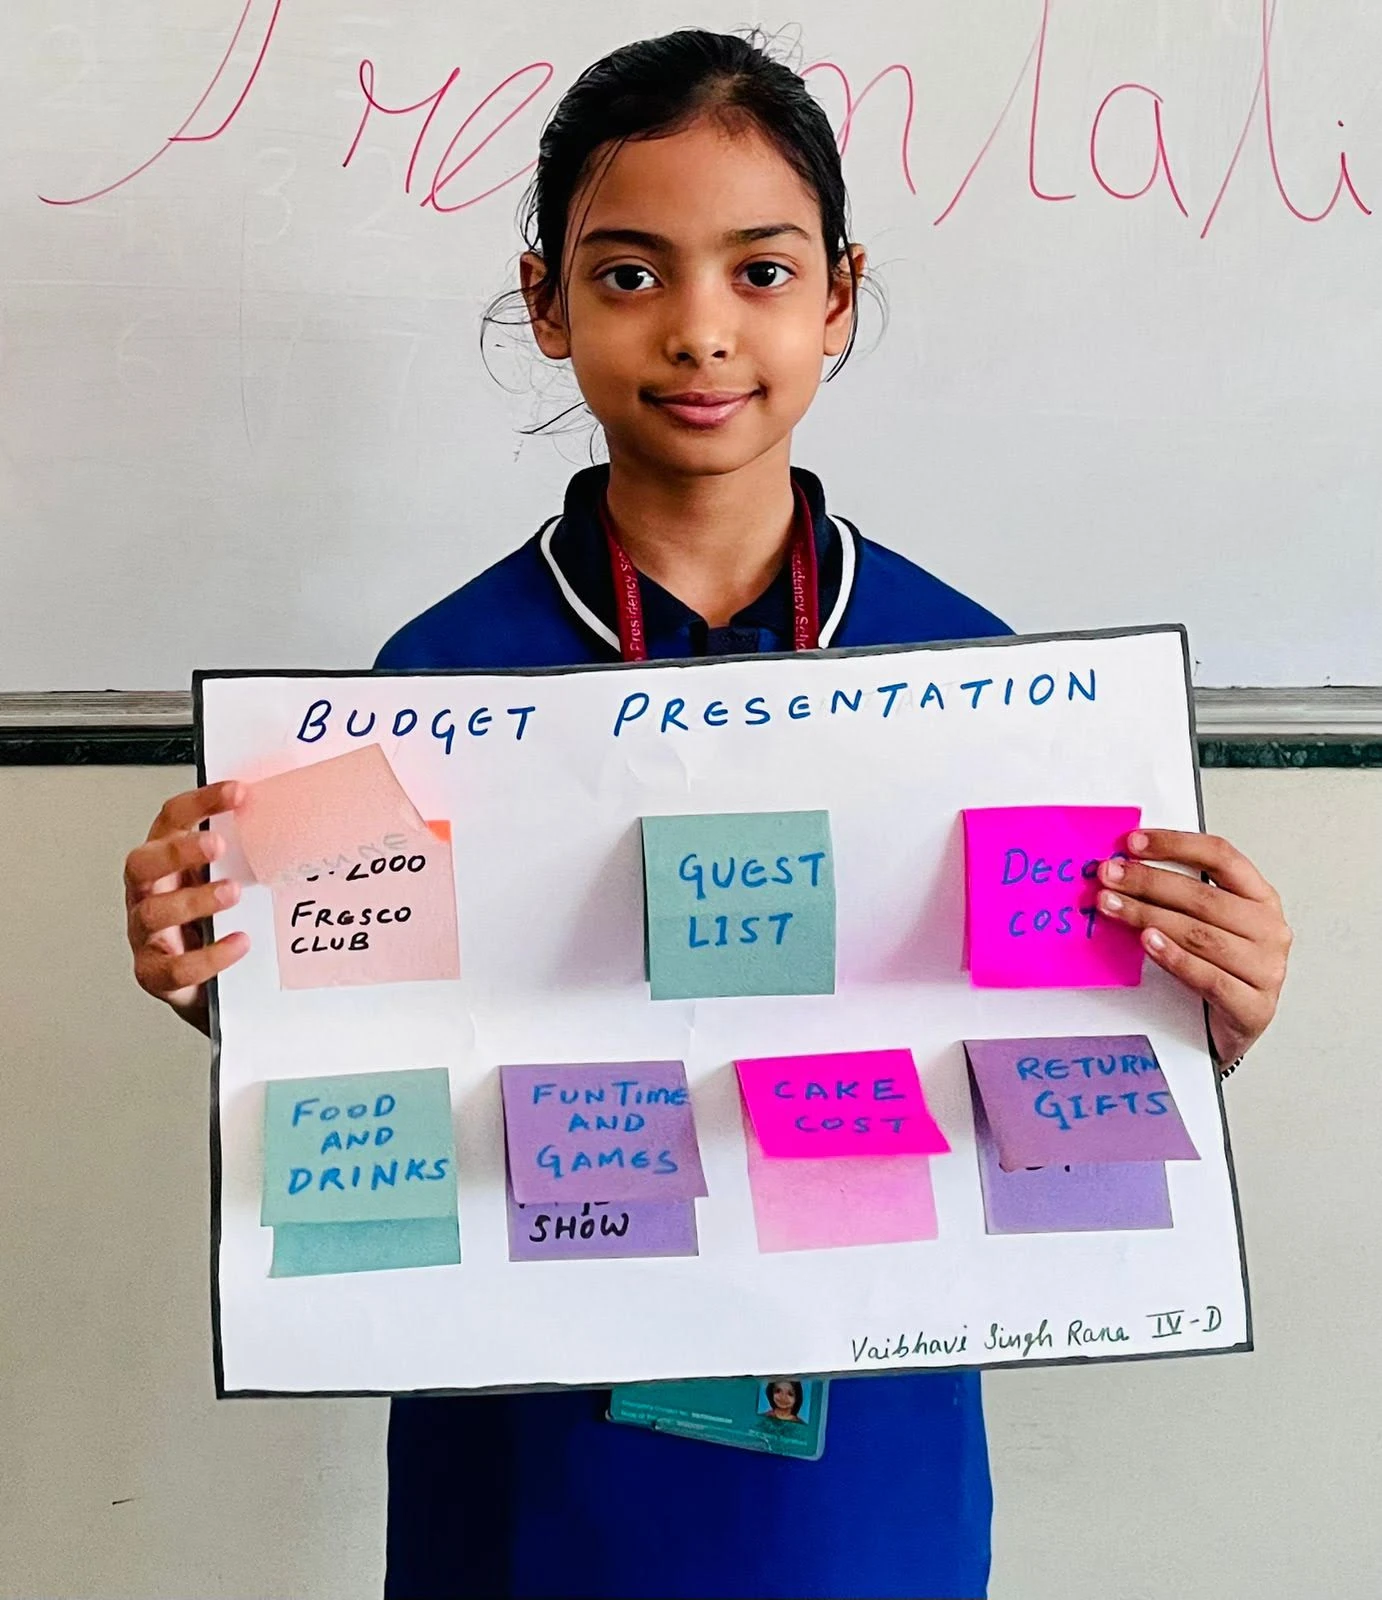 Presidency Sch
sidency Scho
BUDGET PRESENTATION
2000
FRESCO
CLUB
GUEST
LIST
COST
FOOD
AND
DRINKS
FUN TIME
AND
GAMES
SHOW
CAKE
COST
RETURN
GIFTS
Vaibhavi Singh Rana IV-D